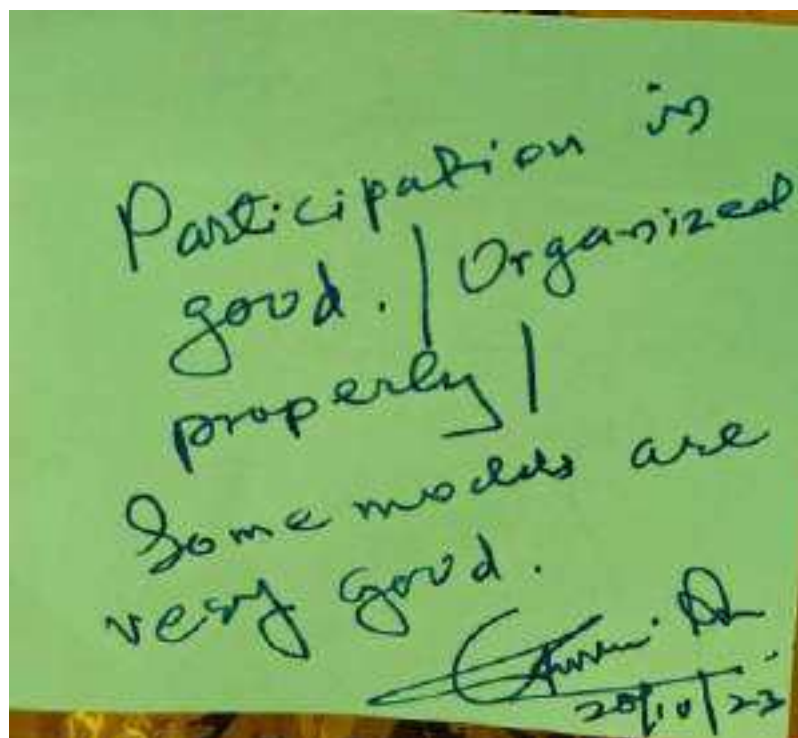 Participation is
good. | Organized
properly |
Some models are
very good.